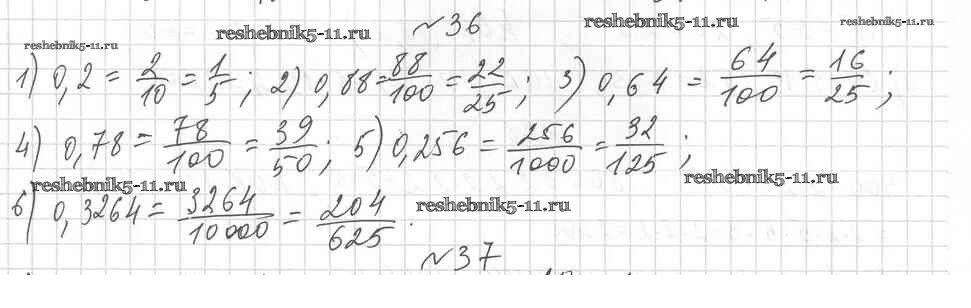 №36
reshebnik5-11.ru reshebnik5-11.ru reshebnik5-11.ru
1) 0,2 = 2/10 = 1/5; 2) 0,88 = 88/100 = 22/25; 3) 0,64 = 64/100 = 16/25;
4) 0,78 = 78/100 = 39/50; 5) 0,256 = 256/1000 = 32/125;
reshebnik5-11.ru reshebnik5-11.ru
6) 0,3264 = 3264/10000 = 204/625.
reshebnik5-11.ru
№37